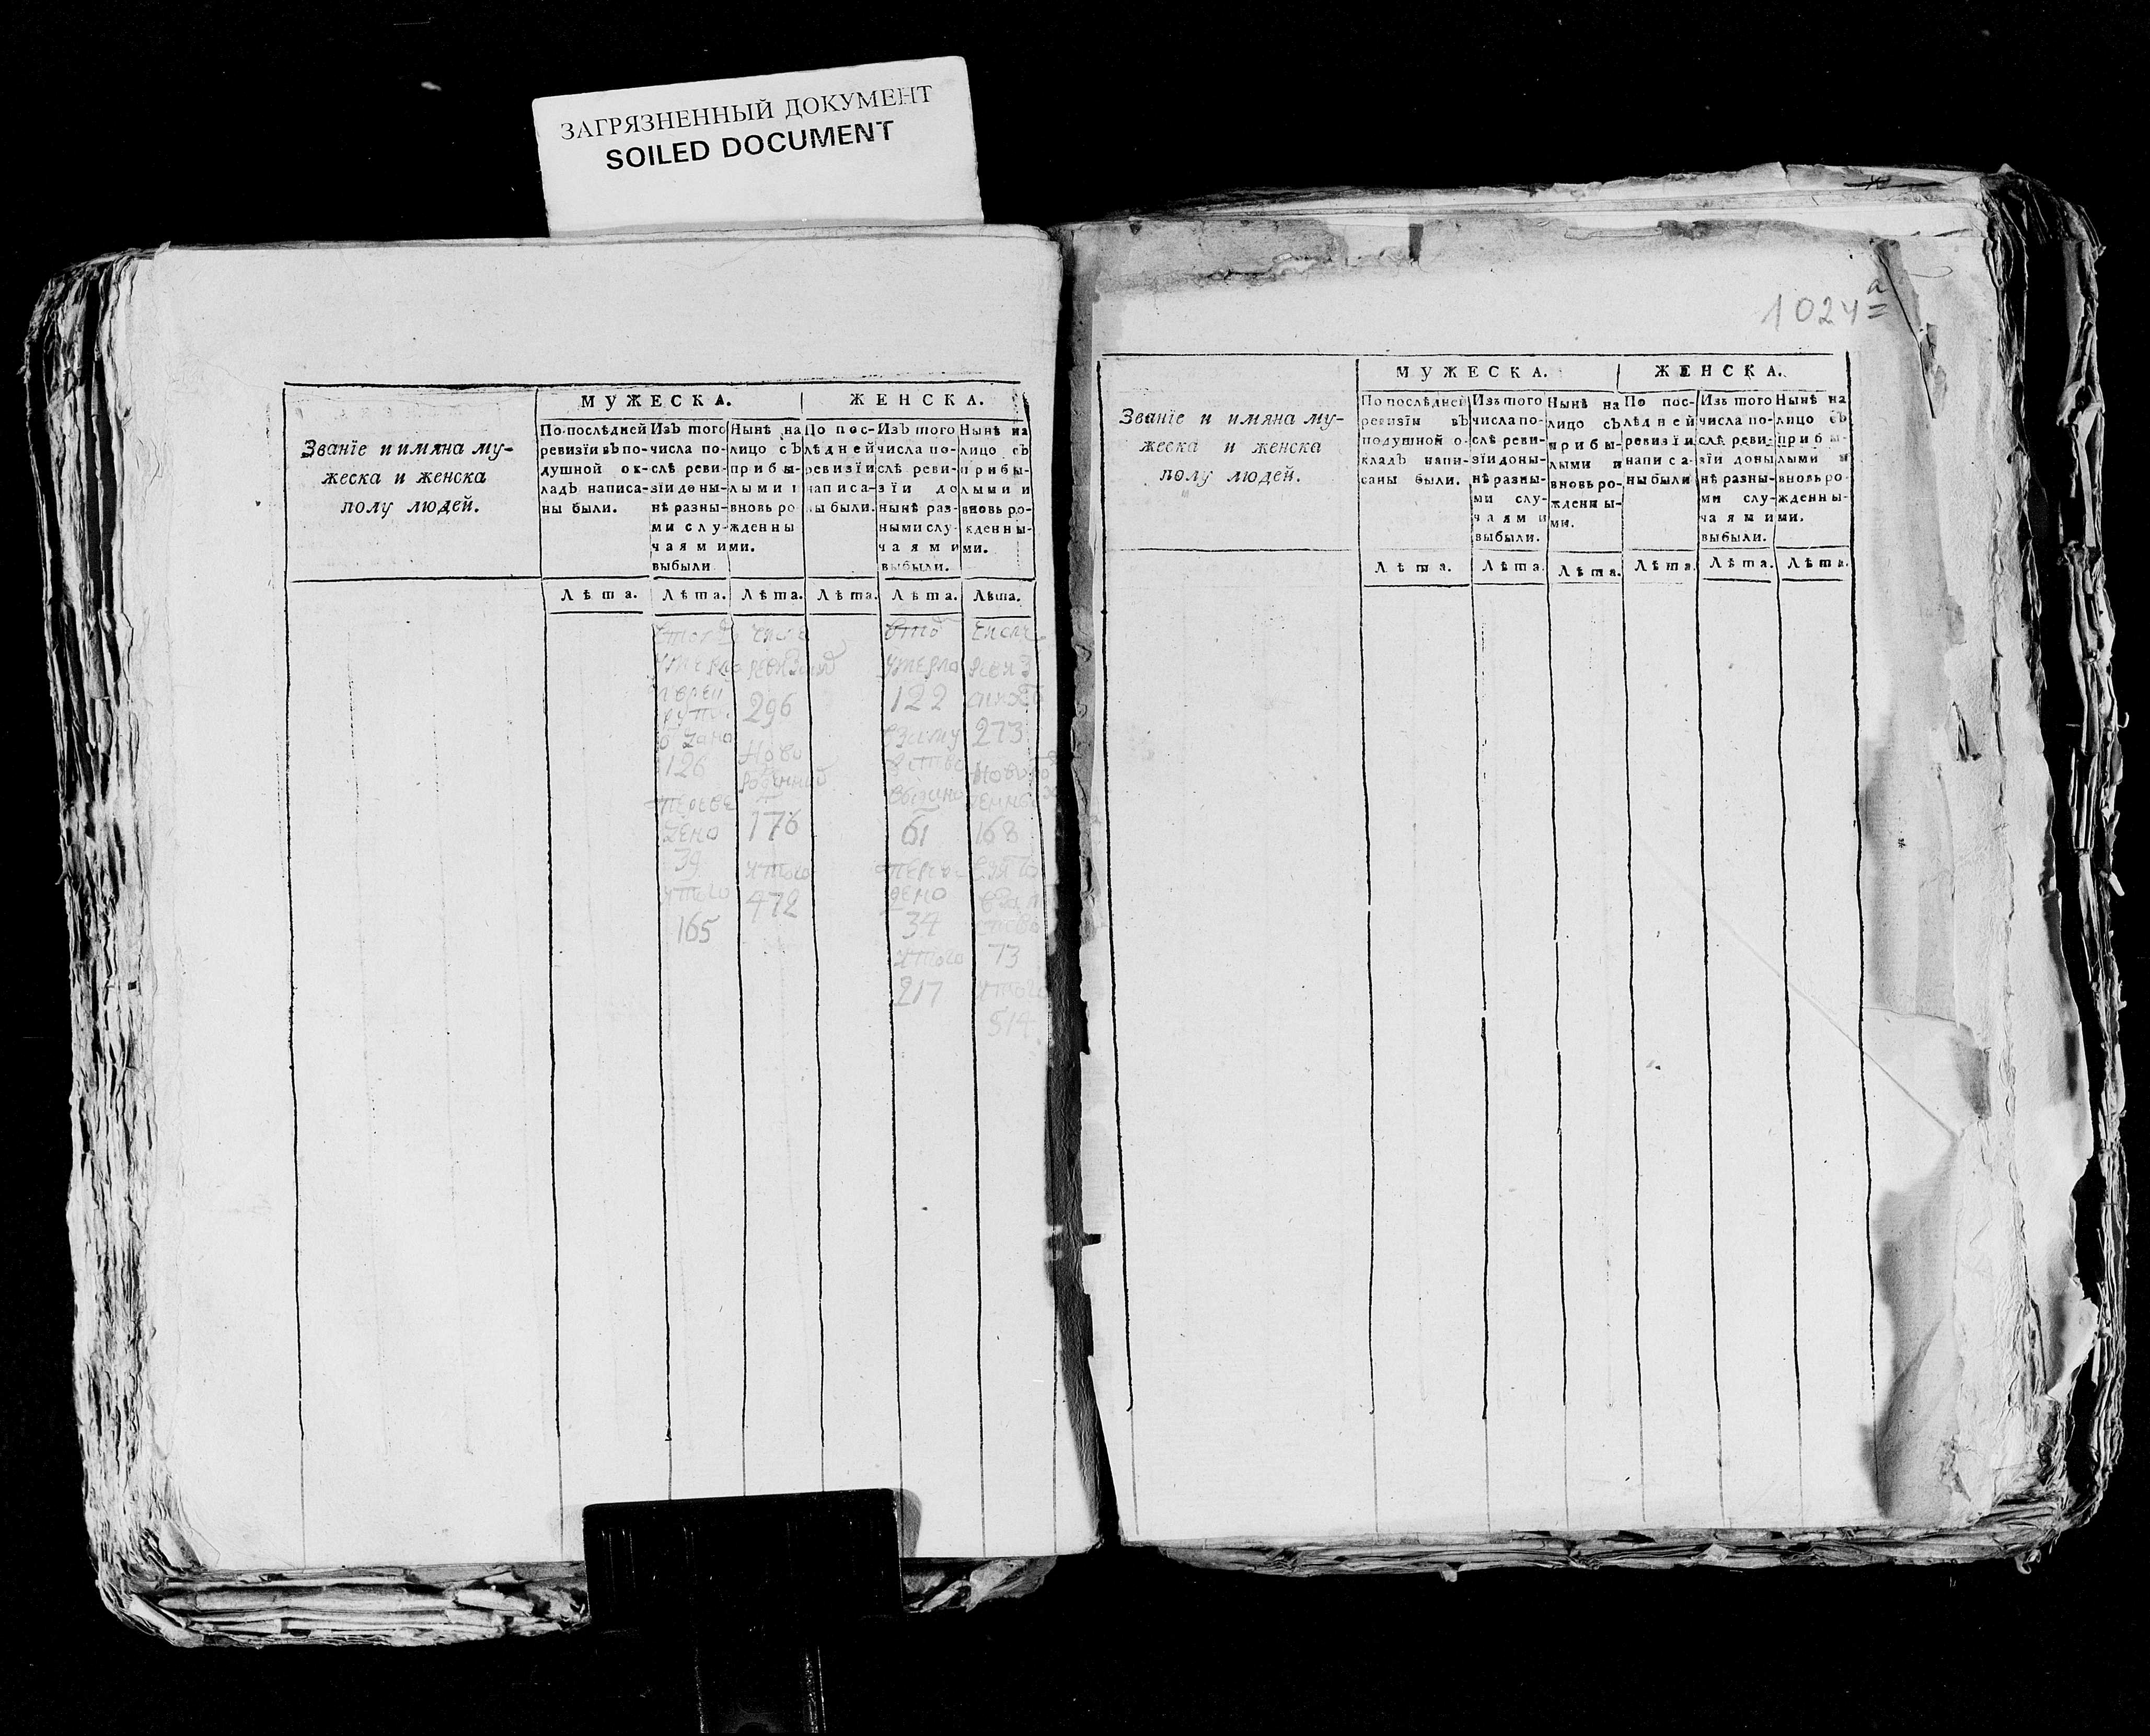 ЗАГРЯЗНЕННЫЙ ДОКУМЕНТ
SOILED DOCUMENT
Званїе и имяна му-
жеска и женска
полу людей.
МУЖЕСКА.
ЖЕНСКА.
По послѣдней
ревизїи въ по-
душной ок-
ладъ написа-
ны были.
Изъ того
числа по-
слѣ реви-
зїи доны-
нѣ разны-
ми слу-
чаями
выбыли
Нынѣ на
лицо съ
прибы-
лыми и
вновь ро
жденны
ми.
По пос-
лѣдней
ревизїи
написа-
ны были.
Изъ того
числа по-
слѣ реви-
зїи до
нынѣ раз-
ными слу-
чаями
выбыли.
Нынѣ на
лицо съ
прибы-
лыми и
вновь ро-
жденны-
ми.
Лѣта. Лѣта. Лѣта. Лѣта. Лѣта. Лѣта.
126
39
итого
165
296
Ново
176
итого
472
умерло
122
61
34
итого
217
273
168
73
итого
514
1024а
Званїе и имяна му-
жеска и женска
полу людей.
МУЖЕСКА.
ЖЕНСКА.
По послѣдней
ревизїи въ
подушной о-
кладъ напи-
саны были.
Изъ того
числа по-
слѣ реви-
зїи доны-
нѣ разны-
ми слу-
чаями
выбыли.
Нынѣ на
лицо съ
прибы-
лыми и
вновь ро-
жденны-
ми.
По пос-
лѣдней
ревизїи
написа-
ны были
Изъ того
числа по-
слѣ реви-
зїи доны
нѣ разны-
ми слу-
чаями
выбыли.
Нынѣ на
лицо съ
прибы-
лыми и
вновь ро-
жденны-
ми.
Лѣта. Лѣта. Лѣта. Лѣта. Лѣта. Лѣта.